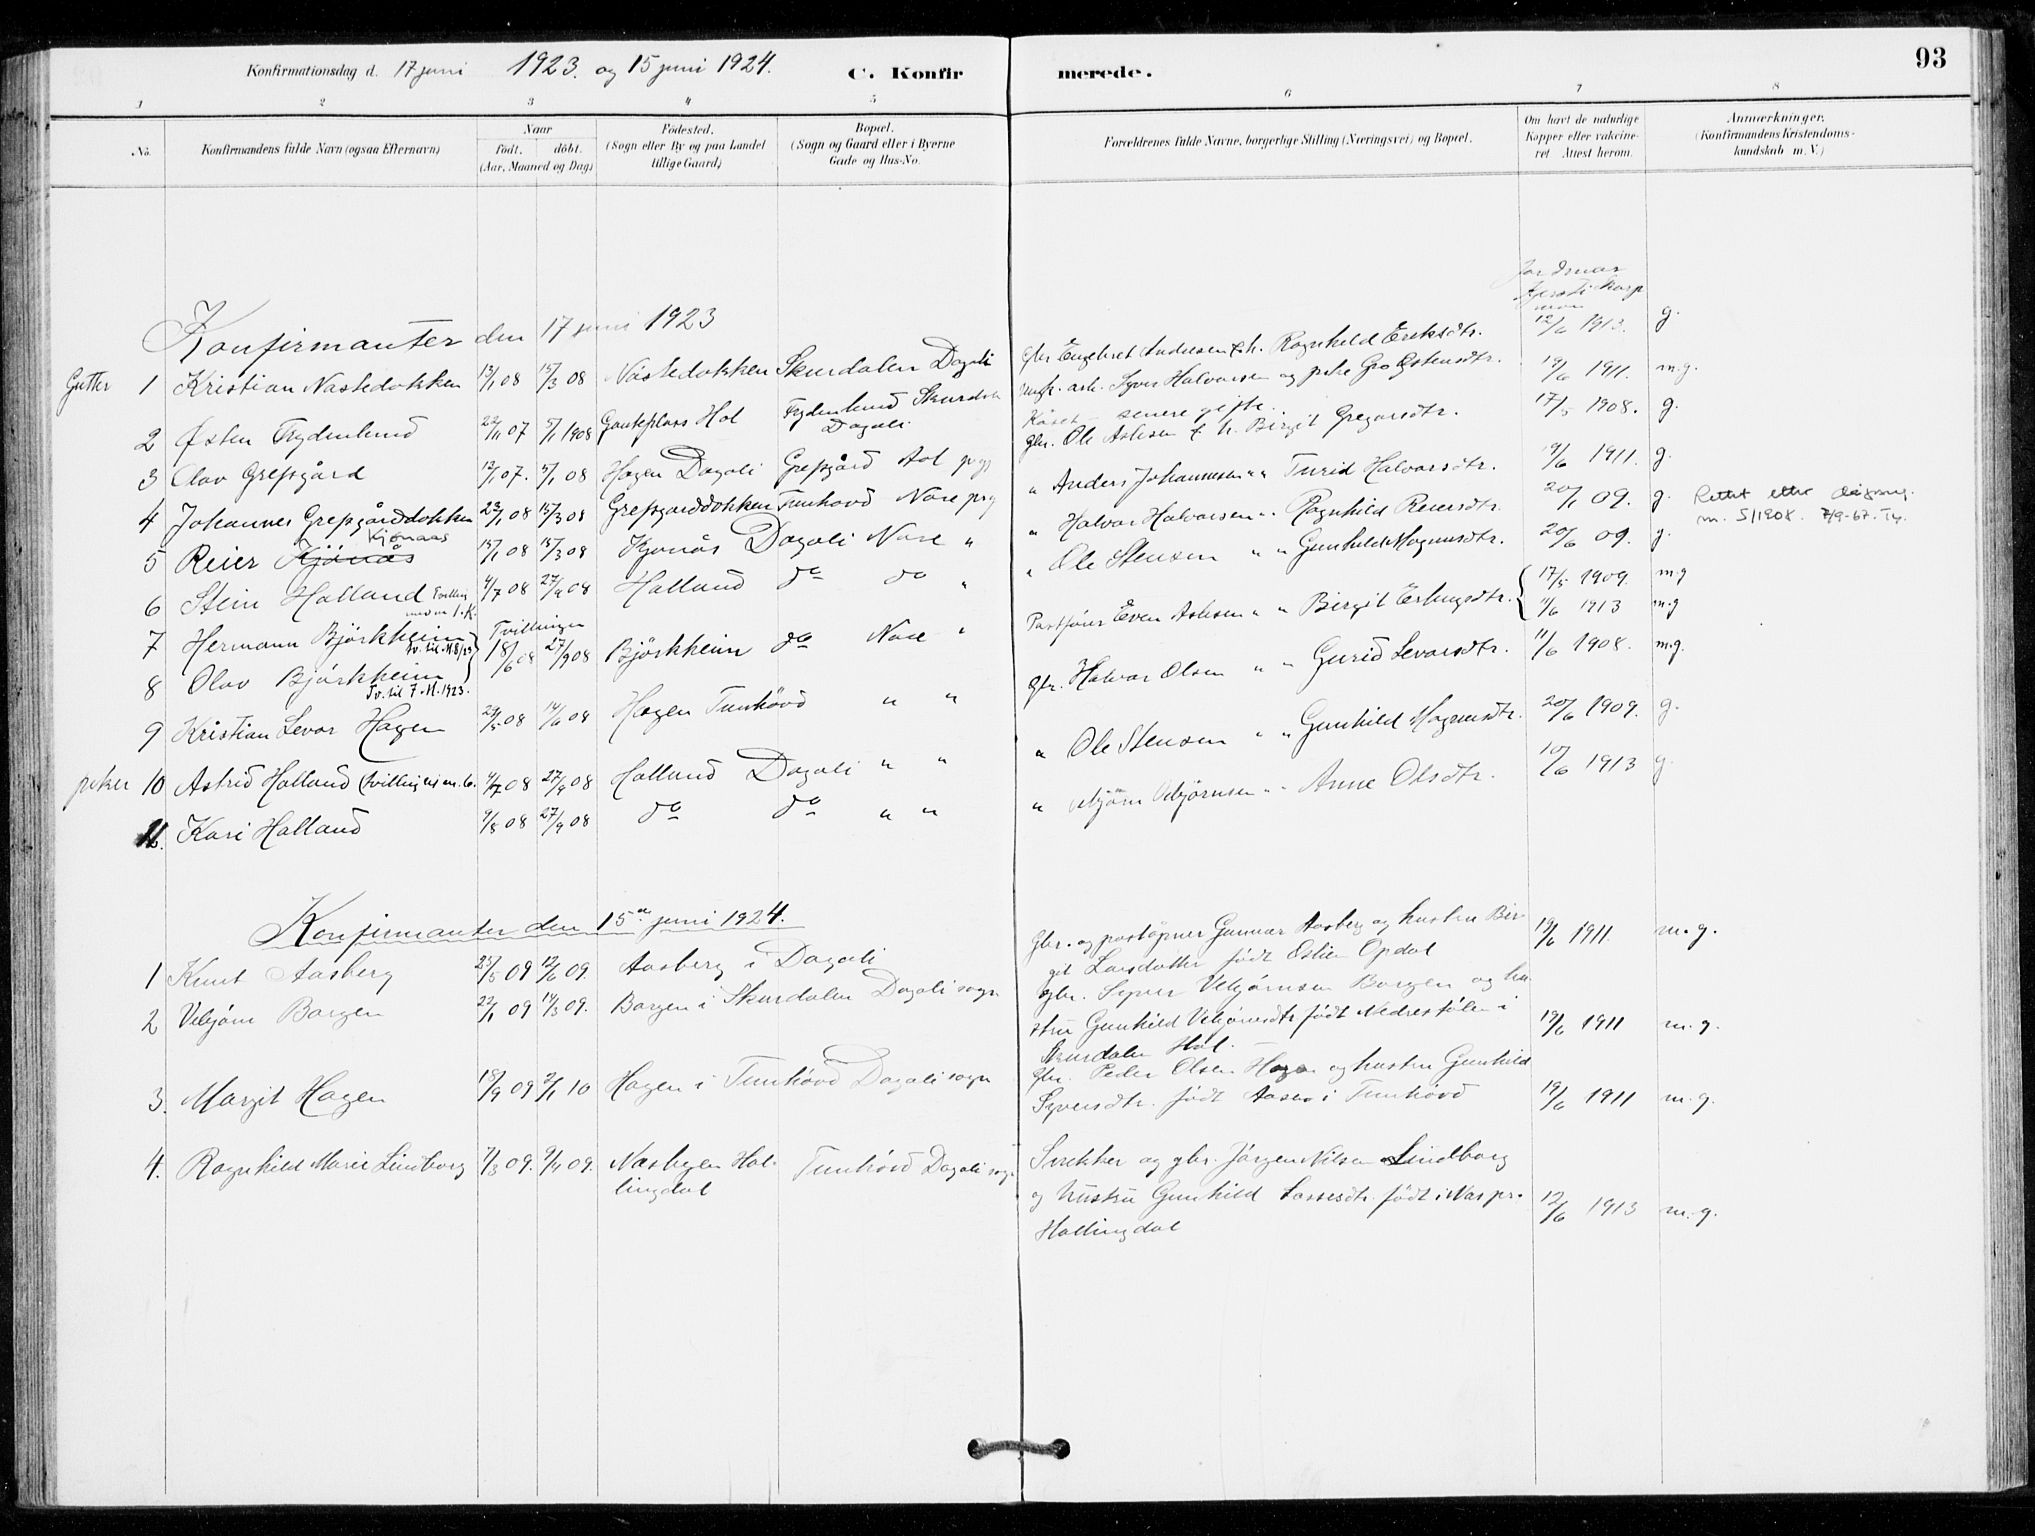 Konfirmationsdag d. 17 juni 1923. og 15 juni 1924. C. Konfirmerede. 93
1 2 3 4 5 6 7 8
No. Konfirmandens fulde Navn (ogsaa Efternavn) Naar født. døbt. (Aar, Maaned og Dag) Fødested. (Sogn eller By og paa Landet tillige Gaard) Bopæl. (Sogn og Gaard eller i Byerne Gade og Hus-No. Forældrenes fulde Navne, borgerlige Stilling (Næringsvei) og Bopæl. Om havt de naturlige Kopper eller vakcineret. Attest herom. Anmærkninger. (Konfirmandens Kristendomskundskab m. V.)
Konfirmanter den 17 juni 1923
Gutter 1 Kristian Nastedokken 13/1 08 15/3 08 Nästedokken Skurdalen Dagali Gbr Engebret Andersen & h. Ragnhild Eriksdtr. 12/6 1913. g.
2 Østen Frydenlund 22/11 07 5/1 1908 Gauteplass Hol Frydenlund Skurdal Dagali Syver Halvorsen og pike Gro Østensdtr. senere gifte. 19/6 1911. m.g.
3 Olav Grepsgård 12/ 07. 5/1 08 Hagen Dagali Grepsgård Aol gbr. Ole Aslesen & h. Birgit Gregarsdtr. 17/5 1908. g.
4 Johannes Grepsgårddokken 23/1 08 15/3 08 Grepsgarddokken Tunhovd Nore prg " Anders Johannesen " " Turid Halvorsdtr. 19/6 1911. g.
5 Reier Kjønås Kjønaas 15/1 08 15/3 08 Kjonås Dagali Nore " " Halvor Halvorsen " " Ragnhild Reiersdtr. 20/1 09. g. Rettet etter m. 5/1908. 7/9-67.
6 Stein Halland Tvilling med nr 1. K. 4/7 08 27/9 08 Halland do do " " Ole Stensen " " Gunhild Magnusdtr. 20/6 09. g.
7 Hermann Björkheim Tv. til M 8/23 Tvillinger 18/6 08 27/9 08 Björkheim do Nore " Postfører Even Aslesen " " Birgit Erlingsdtr. 17/5 1909. m.g
8 Olav Björkheim Tv. til 7. M. 1923. 11/6 1913 m.g
9 Kristian Levor Hagen 29/5 08 14/6 08 Hagen Tunhövd " " gbr. Halvor Olsen " " Gurid Levorsdtr. 11/6 1908. m.g.
piker 10 Astrid Halland (tvilling til nr. 6. 4/7 08 27/9 08 Halland Dagali " " " Ole Stensen " " Gunhild Magnusdtr. 20/6 1909. g.
11. Kari Halland 9/8 08 27/9 08 do do " " " Vebjörn Vebjørnsen " " Anne Olsdtr. 10/6 1913 g.
Konfirmanter den 15de juni 1924.
1 Knut Aasberg 23/5 09 12/6 09. Aasberg i Dagali Gbr. og poståpner Gunnar Aasberg og hustru Bir-
git Larsdatter født Eslien Opdal 19/6 1911. m.g.
2 Vebjørn Borgen 22/1 09 14/3 09. Borgen i Skurdalen Dagali sogn gbr. Syver Vebjørnsen Borgen og hu-
stru Gunhild Vebjørnsdtr. født Nedrestølen i 19/6 1911 m.g.
Skurdalen Hol.
3. Margit Hagen 18/9 09 2/1 10 Hagen i Tunhövd Dagali sogn Gbr. Peder Olsen Hagen og hustru Gunhild
Syversdtr. født Aasen i Tunhövd 19/6 1911 m.g.
4. Ragnhild Marie Lindborg 7/3 09. 9/4 09. Nasbyen Hal-
lingdal Tunhövd Dagali sogn Snekker og gbr. Jörgen Nilsen Lindborg
og hustru Gunhild Lassesdtr. født i Nas pr. 12/6 1913 m.g.
Hallingdal